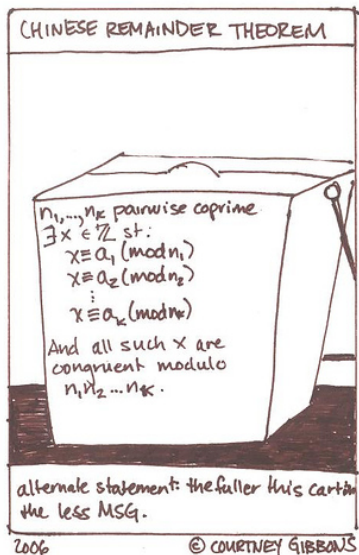 CHINESE REMAINDER THEOREM
n₁,...,nₖ pairwise coprime
∃x ∈ ℤ st:
x≡a₁(mod n₁)
x≡a₂(mod n₂)
⋮
x≡aₖ(mod nₖ)
And all such x are
congruent modulo
n₁n₂...nₖ.
alternate statement: the fuller this carton
the less MSG.
2006 © COURTNEY GIBBONS